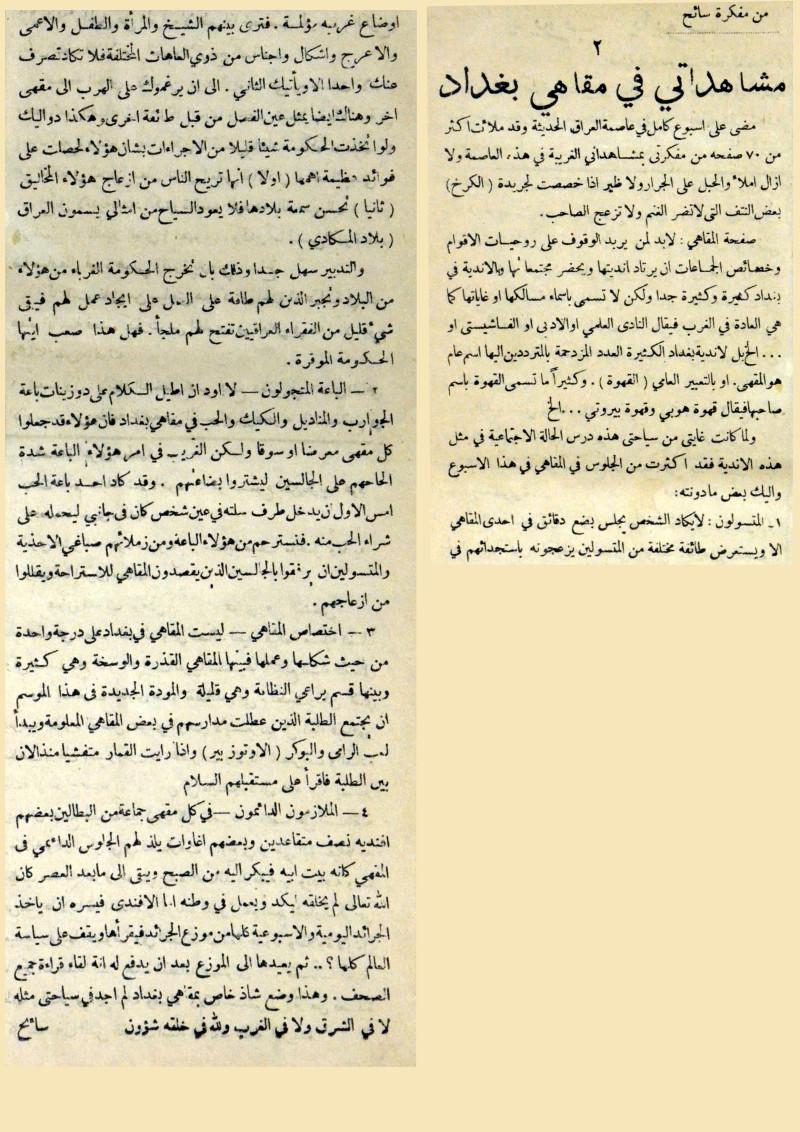 من مفكرة سائح
٢
مشاهداتي في مقاهي بغداد
مضى على اسبوع كامل في عاصمة العراق الحديثة وقد ملائت اكثر
من ٧٠ صفحه من مفكرتى بمشاهداتي الغريبة في هذه العاصمة ولا
ازال املأ والحبل على الجرار ولا ظير اذا خصصت لجريدة ( الكرخ )
بعض النتف التى لاتضر الغنم ولا تزعج الصاحب.
صفحة المقاهي : لابد لمن يريد الوقوف على روحيات الاقوام
وخصائص الجماعات ان يرتاد انديتها ويحضر مجتمعاتها وبالاندية في
بغداد كثيرة وكثيرة جدا ولكن لا تسمى باسماء مسالكها او غاياتها كما
هي العادة في الغرب فيقال النادى العلمي او الادبى او الفاشيستى او
... الخ بل لاندية بغداد الكثيرة العدد المزدحمة بالمترددين اليها اسم عام
هو المقهى. او بالتعبير العامي ( القهوة ) . وكثيراً ما تسمى القهوة باسم
صاحبها فيقال قهوة هوبي وقهوة بيروتي ... الخ
ولما كانت غايتى من سياحتى هذه درس الحالة الاجتماعية في مثل
هذه الاندية فقد اكثرت من الجلوس في المقاهي في هذا الاسبوع
واليك بعض مادونته:
١ـ المتسولون : لايكاد الشخص يجلس بضع دقائق في احدى المقاهي
الا ويستعرض طائفة مختلفة من المتسولين يزعجونه باستجدائهم في
اوضاع غريبه مؤلمة . فترى بينهم الشيخ والمرأة والطفل والاعمى
والاعرج واشكال واجناس من ذوي العاهات المختلفة فلا تكاد تصرف
عنك واحدا الا ويأتيك الثاني . الى ان يرغموك على الهرب الى مقهى
اخر وهناك ايضا يمثل عين الفصل من قبل طائفة اخرى وهكذا دواليك
ولو اتخذت الحكومة شيئا قليلا من الاجراءات بشان هؤلاء لحصات على
فوائد عظيمة اهمها ( اولا ) انها تريح الناس من ازعاج هؤلاء المخاليق
( ثانيا ) تحسن سمعة بلادها فلا يعود السياح من امثالي يسمون العراق
( بلاد المكادي ) .
والتدبير سهل جدا وذلك بان تخرج الحكومة الغرباء من هؤلاء
من البلاد وتجبر الذين لهم طاقة على العمل على ايجاد عمل لهم فيبقى
شيء قليل من الفقراء العراقيين تفتح لهم ملجأ . فهل هذا صعب ايتها
الحكومة الموقرة .
٢ – الباعة المتجولون – لا اود ان اطيل الكلام على دوزينات باعة
الجوارب والمناديل والكيك والحب في مقاهي بغداد فان هؤلاء قد جعلوا
كل مقهى معرضا او سوقا ولكن الغريب في امر هؤلاء الباعة شدة
الحاحهم على الجالسين ليشتروا بضائعهم . وقد كاد احد باعة الحب
امس الاول ان يدخل طرف سلته في عين شخص كان في جانبي ليحمله على
شراء الحب منه . فنسترحم من هؤلاء الباعة ومن زملائهم صباغي الاحذية
والمتسولين ان يرفقوا بالجالسين الذين يقصدون المقاهي للاستراحة ويقللوا
من ازعاجهم .
٣ – اختصاص المقاهي – ليست المقاهي في بغداد على درجة واحدة
من حيث شكلها وعملها فبينها المقاهي القذرة والوسخة وهي كثيرة
وبينها قسم يراعي النظافة وهي قليلة والمودة الجديدة في هذا الموسم
ان يجتمع الطلبة الذين عطلت مدارسهم في بعض المقاهي المعلومة ويبدأ
لعب الرامى والبوكر ( الاوتوز بير ) واذا رايت القمار متفشيا منذ الان
بين الطلبة فاقرأ على مستقبلهم السلام
٤ – الملازمون الدائمون – في كل مقهى جماعة من البطالين بعضهم
افنديه نصف متقاعدين وبعضهم اغاوات يلذ لهم الجلوس الدائمي في
المقهى كانه بيت ابيه فيبكر اليه من الصبح ويبقى الى مابعد العصر كان
الله تعالى لم يخلقه ليكد ويعمل في وطنه اما الافندى فيسره ان ياخذ
الجرائد اليومية والاسبوعية كلها من موزع الجرائد فيقرأها ويقف على سياسة
العالم كلها ؟ .. ثم يعيدها الى الموزع بعد ان يدفع له انة لقاء قراءة جميع
الصحف . وهذا وضع شاذ خاص بمقاهي بغداد لم اجد في سياحتى مثله
لا في الشرق ولا في الغرب ولله في خلقه شؤون سائح